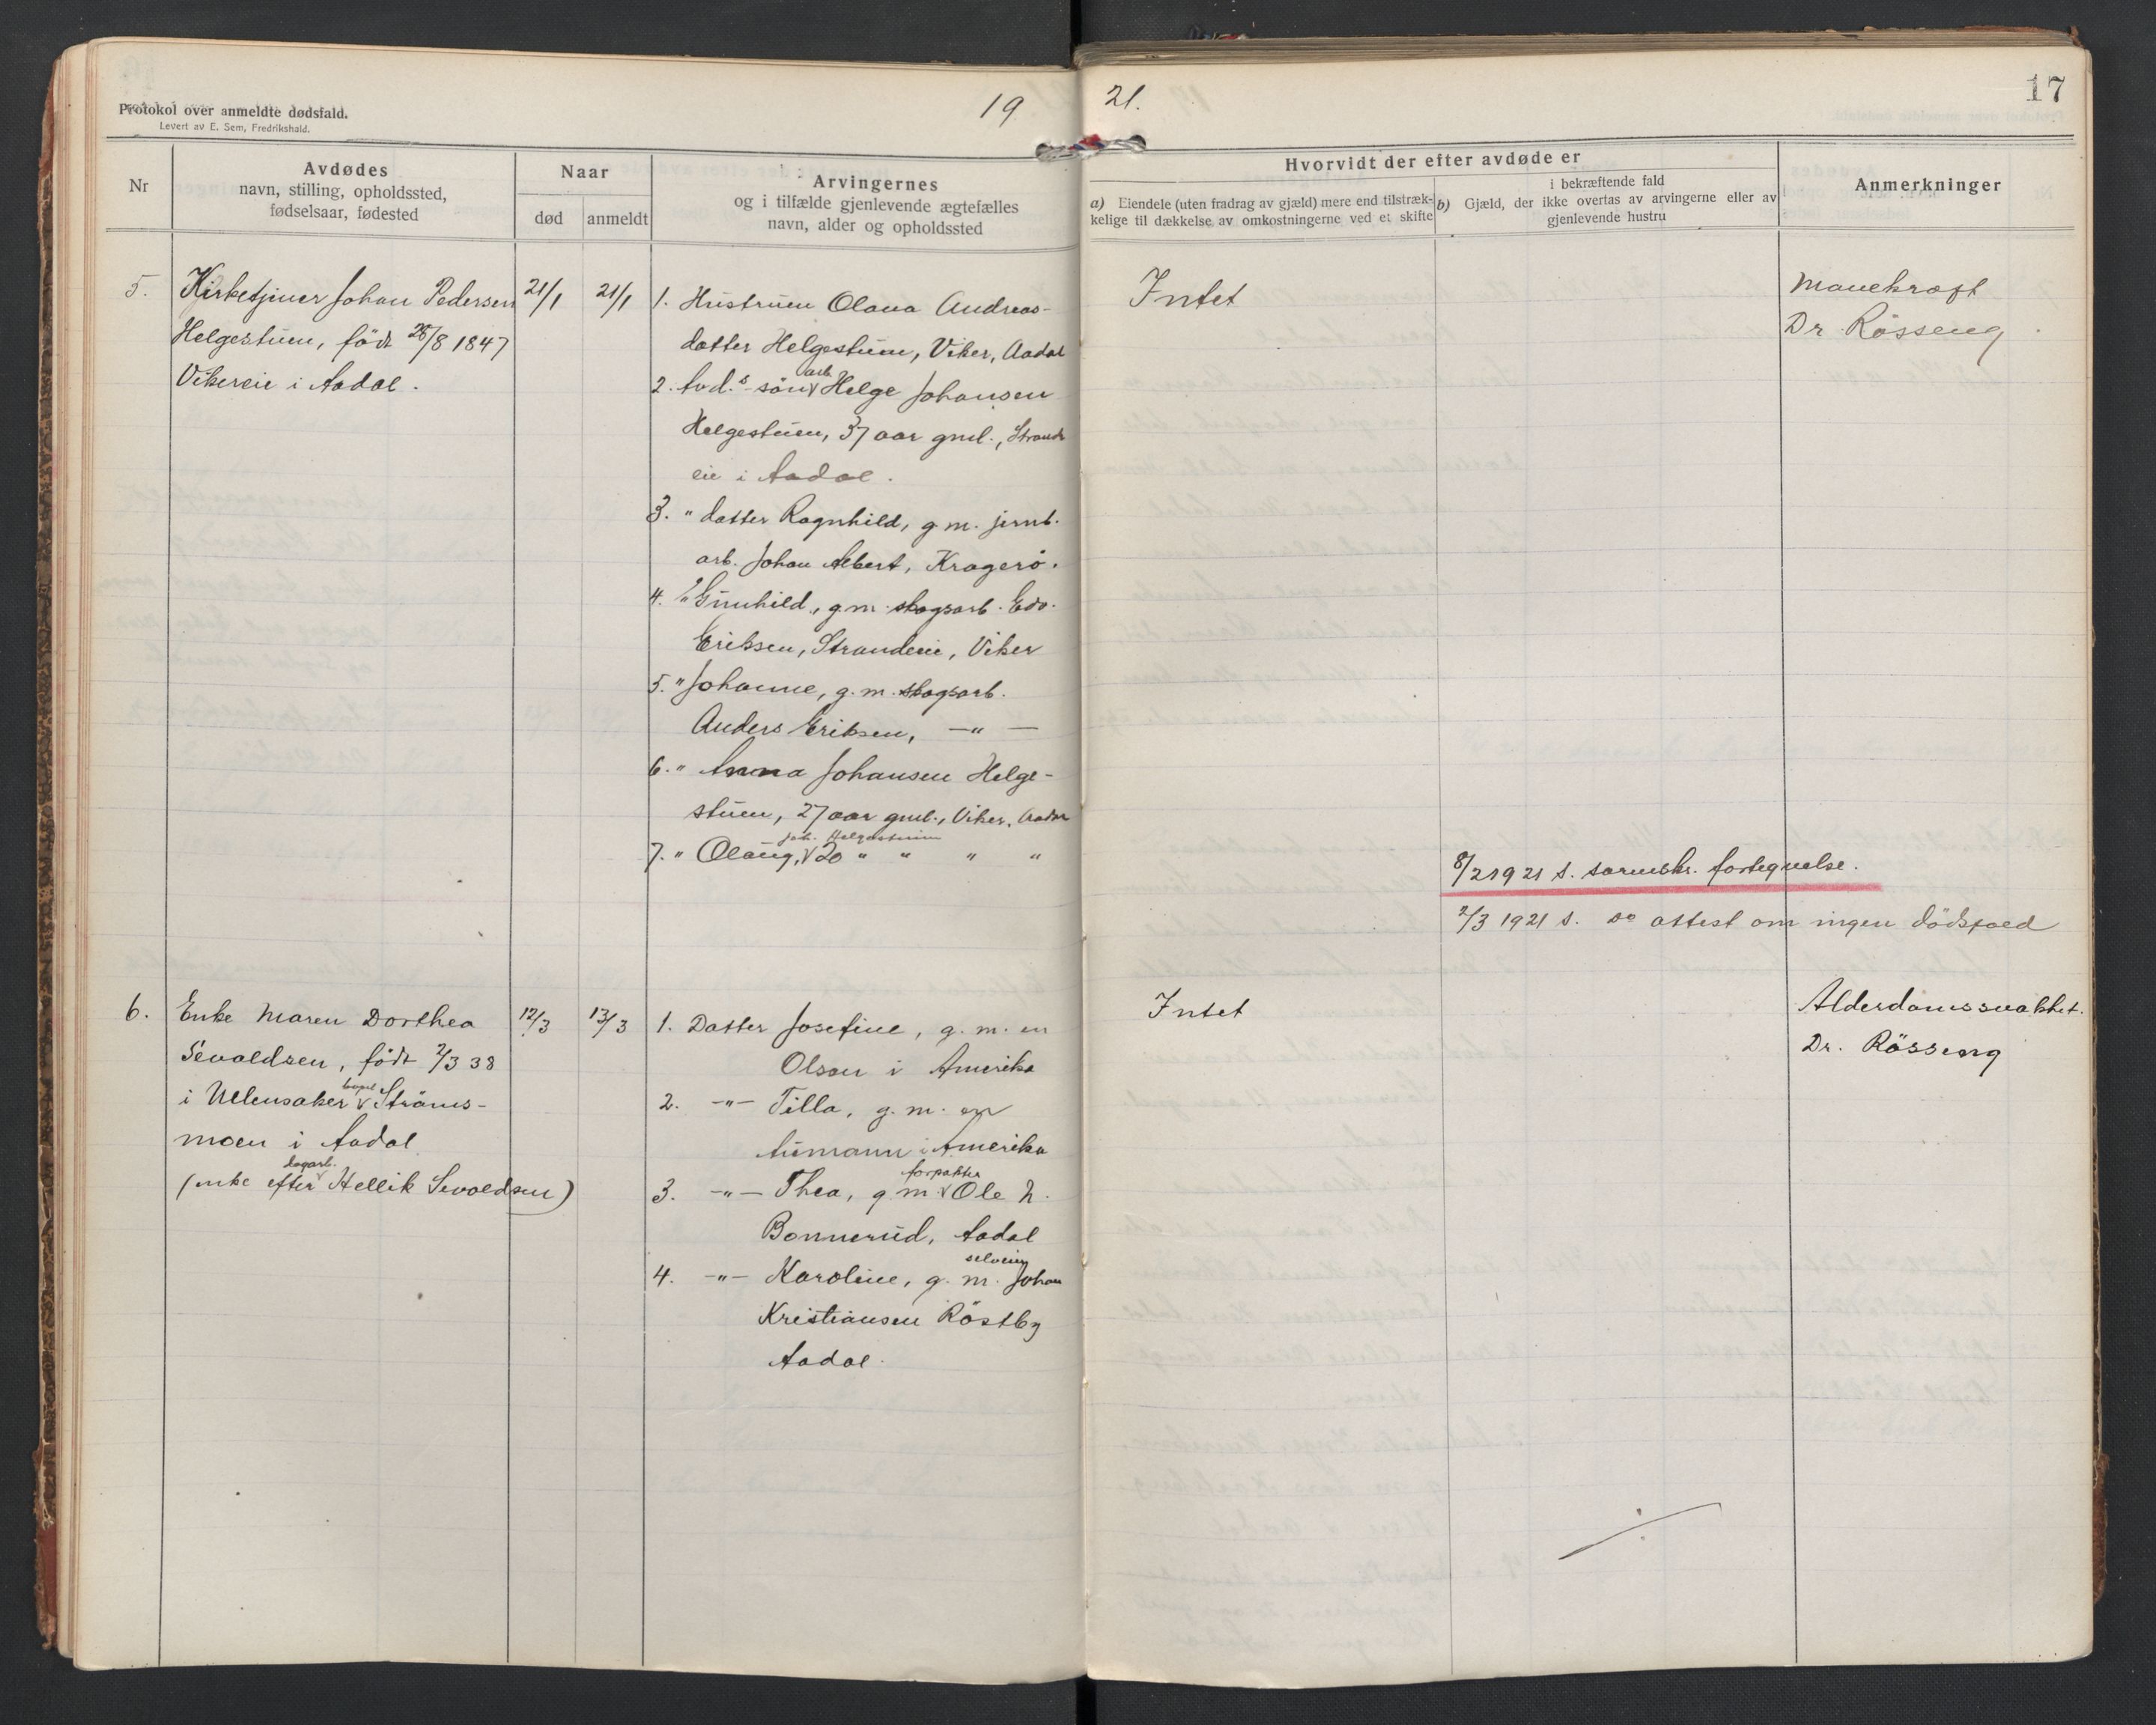 Protokol over anmeldte dødsfald.
Levert av E. Sem, Fredrikshald.
19 21.
17
Nr
Avdødes
navn, stilling, opholdssted,
fødselsaar, fødested
Naar
død
anmeldt
Arvingernes
og i tilfælde gjenlevende ægtefælles
navn, alder og opholdssted
Hvorvidt der efter avdøde er
a) Eiendele (uten fradrag av gjæld) mere end tilstræk-
kelige til dækkelse av omkostningerne ved et skifte
b) i bekræftende fald
Gjæld, der ikke overtas av arvingerne eller av
gjenlevende hustru
Anmerkninger
5.
Kirketjener Johan Pedersen
Helgestuen, født 28/8 1847
Vikereie i Aadal.
21/1
21/1
1. Hustruen Olava Andreas-
datter Helgestuen, Viker, Aadal
2. Avd.s søn arb. Helge Johansen
Helgestuen, 37 aar gml., Strand
eie i Aadal.
3. " datter Ragnhild, g. m. jernb.
arb. Johan Albert, Kragerø.
4. " Gunhild, g. m. skogsarb. Edv.
Eriksen, Strandeie, Viker
5. " Johanne, g. m. skogsarb.
Anders Eriksen, —"—
6. " Anna Johansen Helge-
stuen, 27 aar gml., Viker, Aadal
7. " Olaug, Joh. Helgestuen 20 " " " "
Intet
Mavekræft
Dr. Røsseng
8/2 1921 s. særskr. fortegnelse.
2/3 1921 s. do attest om ingen dødsfald
6.
Enke Maren Dorthea
Sevaldsen, født 2/3 38
i Ullensaker bopel Strøms-
moen i Aadal
(enke efter dagarb. Hellik Sevaldsen)
12/3
13/3
1. Datter Josefine, g. m. en
Olsen i Amerika
2. —"— Tilla, g. m. en
Aumann i Amerika
3. —"— Thea, g. m. forpakter Ole N.
Bonnerud, Aadal
4. —"— Karoline, g. m. selveier Johan
Kristiansen Røstby
Aadal.
Intet
Alderdomssvakhet.
Dr. Røsseng